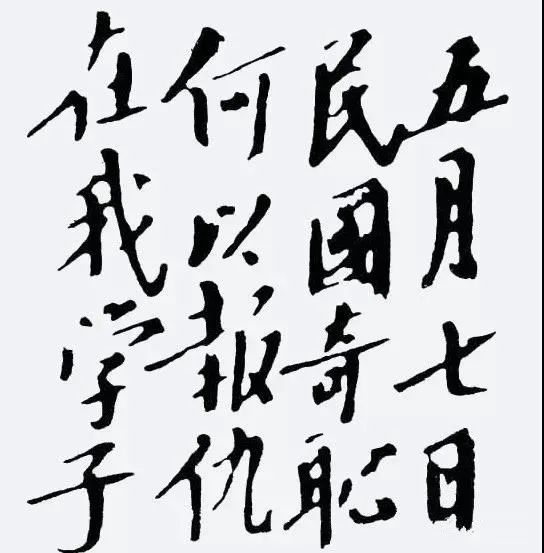 五月七日
民國奇恥
何以報仇
在我学子